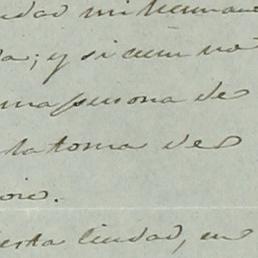 ciudad mi hermano
da; y si aun no
una persona de
la toma de
oio.
esta ciudad, en